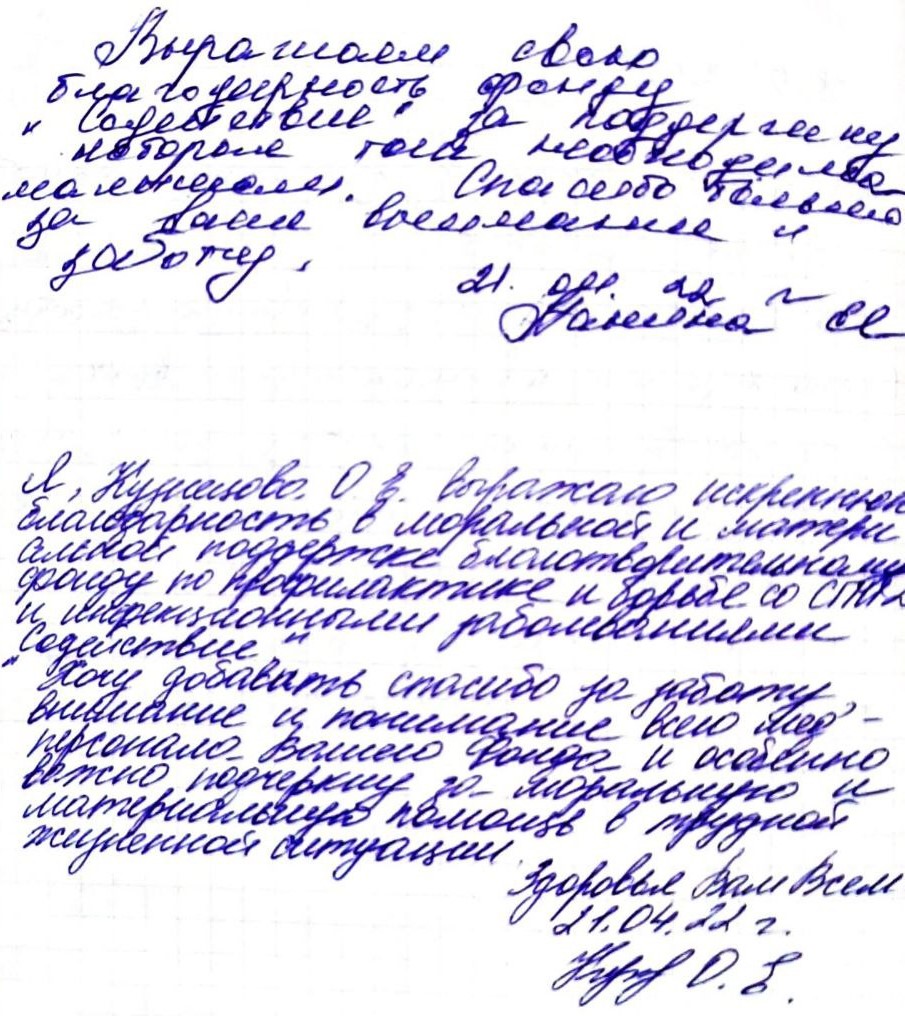 Выражаем свою
благодарность фонду
"Содействие" за поддержку
которая так необходима
малышам. Спасибо большое
за ваше внимание и
заботу.
21. 22 г
Я, Кузнецова О. Е. выражаю искреннюю
благодарность в моральной и матери
альной поддержке благотворительному
фонду по профилактике и борьбе со СПИД
и инфекционными заболеваниями
"Содействие"
Хочу добавить спасибо за заботу,
внимание и понимание всего мед -
персонала Вашего Фонда и особенно
важно подчеркну за моральную и
материальную помощь в трудной
жизненной ситуации.
Здоровья Вам Всем
21.04.22 г.
О. Е.